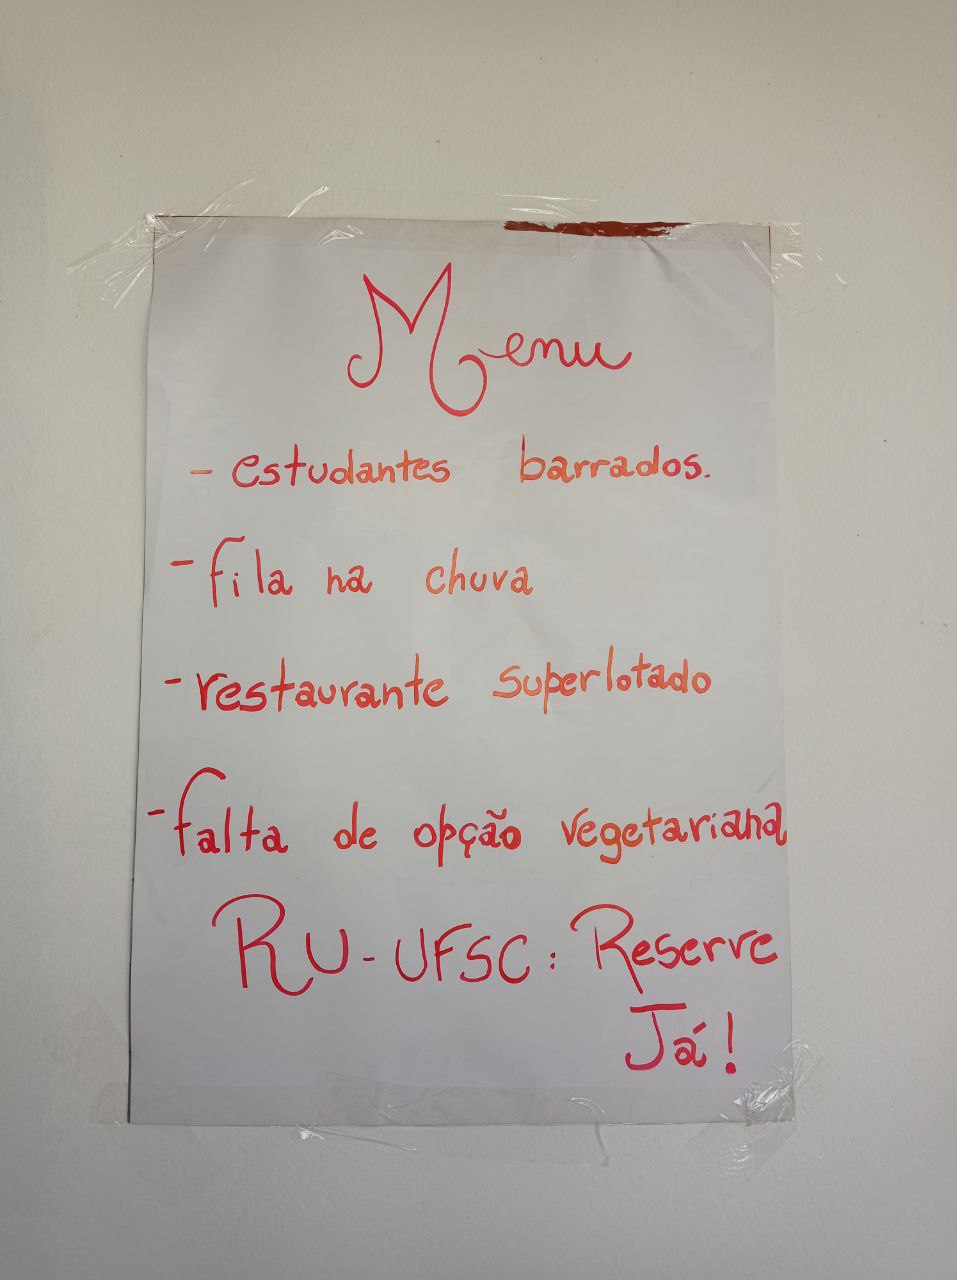 Menu
- estudantes barrados.
- fila na chuva
- restaurante superlotado
- falta de opção vegetariana
RU - UFSC : Reserve
Já!